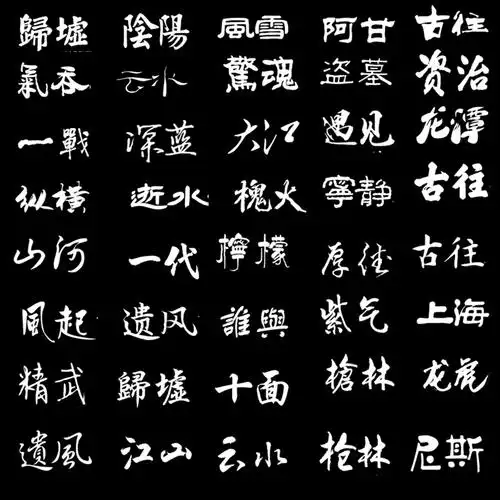 歸墟 陰陽 風雪 阿甘 古往
氣吞 云水 驚魂 盗墓 资治
一戰 深蓝 大江 遇见 龙潭
纵横 逝水 槐火 寧静 古往
山河 一代 檸檬 厚德 古往
風起 遗风 誰與 紫气 上海
精武 歸墟 十面 槍林 龙虎
遺風 江山 云水 枪林 尼斯